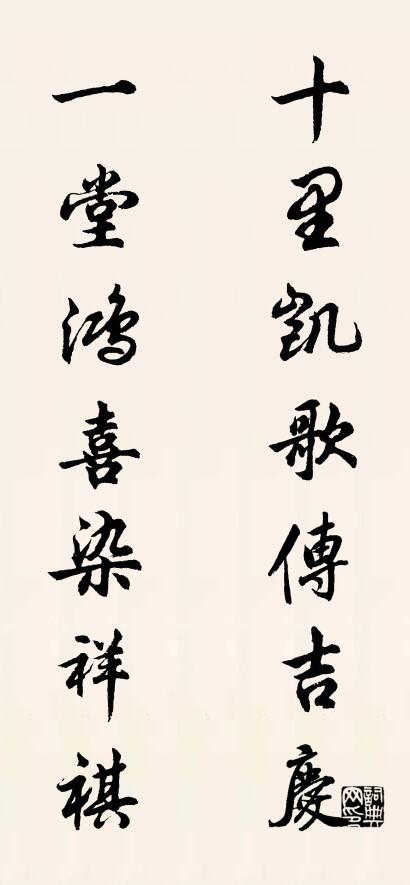 十里凱歌傳吉慶
一堂鴻喜染祥祺
詞典网印